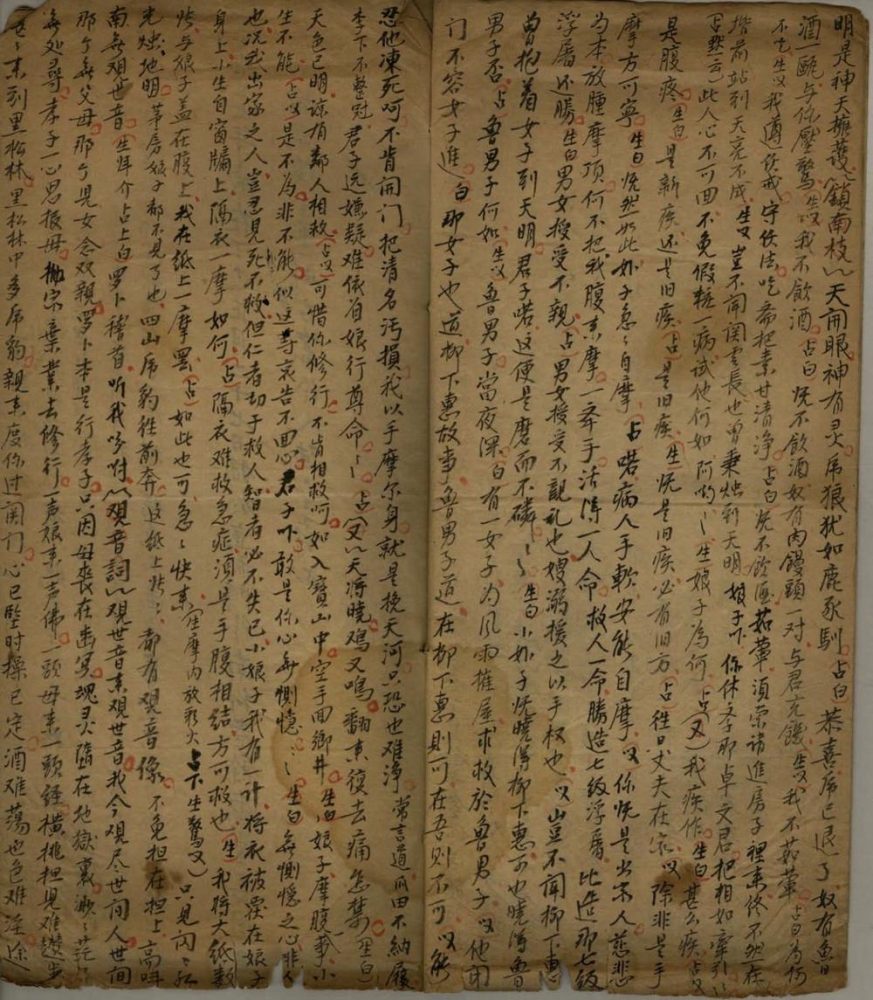 明是神天擁護(鎖南枝)(又)天開眼神有灵虎狼犹如鹿豕馴占白恭喜虎已退了奴有魯
酒一甌与你壓驚生又我不飲酒占白既不飲酒奴有肉饅頭一对与君充饑生又我不茹葷占白為何
不吃生又我遵佼戒守佼法吃斋把素甘清淨占白既不飲酒茹葷須索請進房子裡来終不然在
堦前站到天亮不成生又豈不聞関雲長也曾秉烛到天明娘子下你休季那卓文君把相如牽引
占照云此人心不可回不免假粧一病試他何如阿喲〻生娘子為何占(又)我疾作生白甚么疾占又
是腹疼生白是新疾还是旧疾占是旧疾生既是旧疾必有旧方占往日丈夫在家又除非是手
摩方可寧生白既然如此娘子急〻自摩占喏病人手軟安能自摩又你既是出家人慈悲
為本放踵摩頂何不把我腹来摩一舉手活得一人命救人一命勝造七級浮屠比造那七級
浮屠还勝生白男女授受不親占男女授受不親礼也嫂溺援之以手权也又豈不聞柳下惠
曾抱着女子到天明君子喏这便是磨而不磷〻〻生白小娘子既曉得柳下惠可也曉得魯
男子否占魯男子何如生又魯男子當夜深白有一女子為風雨摧屋求救於魯男子又他閉
門不容女子進白那女子也道柳下惠故事魯男子道在柳下惠則可在吾則不可又能
忍他凍死呵不肯開门把清名污損我以手摩尔身就是挽天河只恐也难淨常言道瓜田不納履
李下不整冠君子远嫌疑难依自娘行尊命〻占(又)天将曉鸡又鳴翻来復去痛怎禁(生白)
天色已明諒有鄰人相救占又可惜你修行不肯相救呵如入寶山中空手回鄉井生白娘子摩腹事小
生不能占又是不為非不能似这等哀告不回心君子下敢是你心無惻憶〻〻生白無惻憶之心非人
也况我出家之人豈忍見死不救但仁者切于救人智者必不失已小娘子我有一计将衣被罢在娘子
身上小生自窗牖上隔衣一摩如何占隔衣难救急症須是手腹相结方可救也生我将大紙数
张与娘子盖在腹上我在紙上一摩罢占如此也可急〻快来(生摩内放彩火占下生驚又)只見闪〻红
光烛地明茅房娘子都不見了也四山虎豹往前奔这紙上张〻都有覌音像不免担在担上高叫
南無覌世音生拜介占上白罗卜稽首听我吩咐(覌音詞)覌世音来覌世音我今覌尽世间人世间
那个無父母那个見女念双親罗卜本是行孝子只因母喪在幽冥魂灵墮在地獄裏渺〻茫〻
無処尋孝子一心思报母抛家棄業去修行一声娘来一声佛一頭母来一頭經横挑担見难趲步
苍〻来到黑松林黑松林中多虎豹親来度你过関门心已堅时操已定酒难蕩也色难淫途